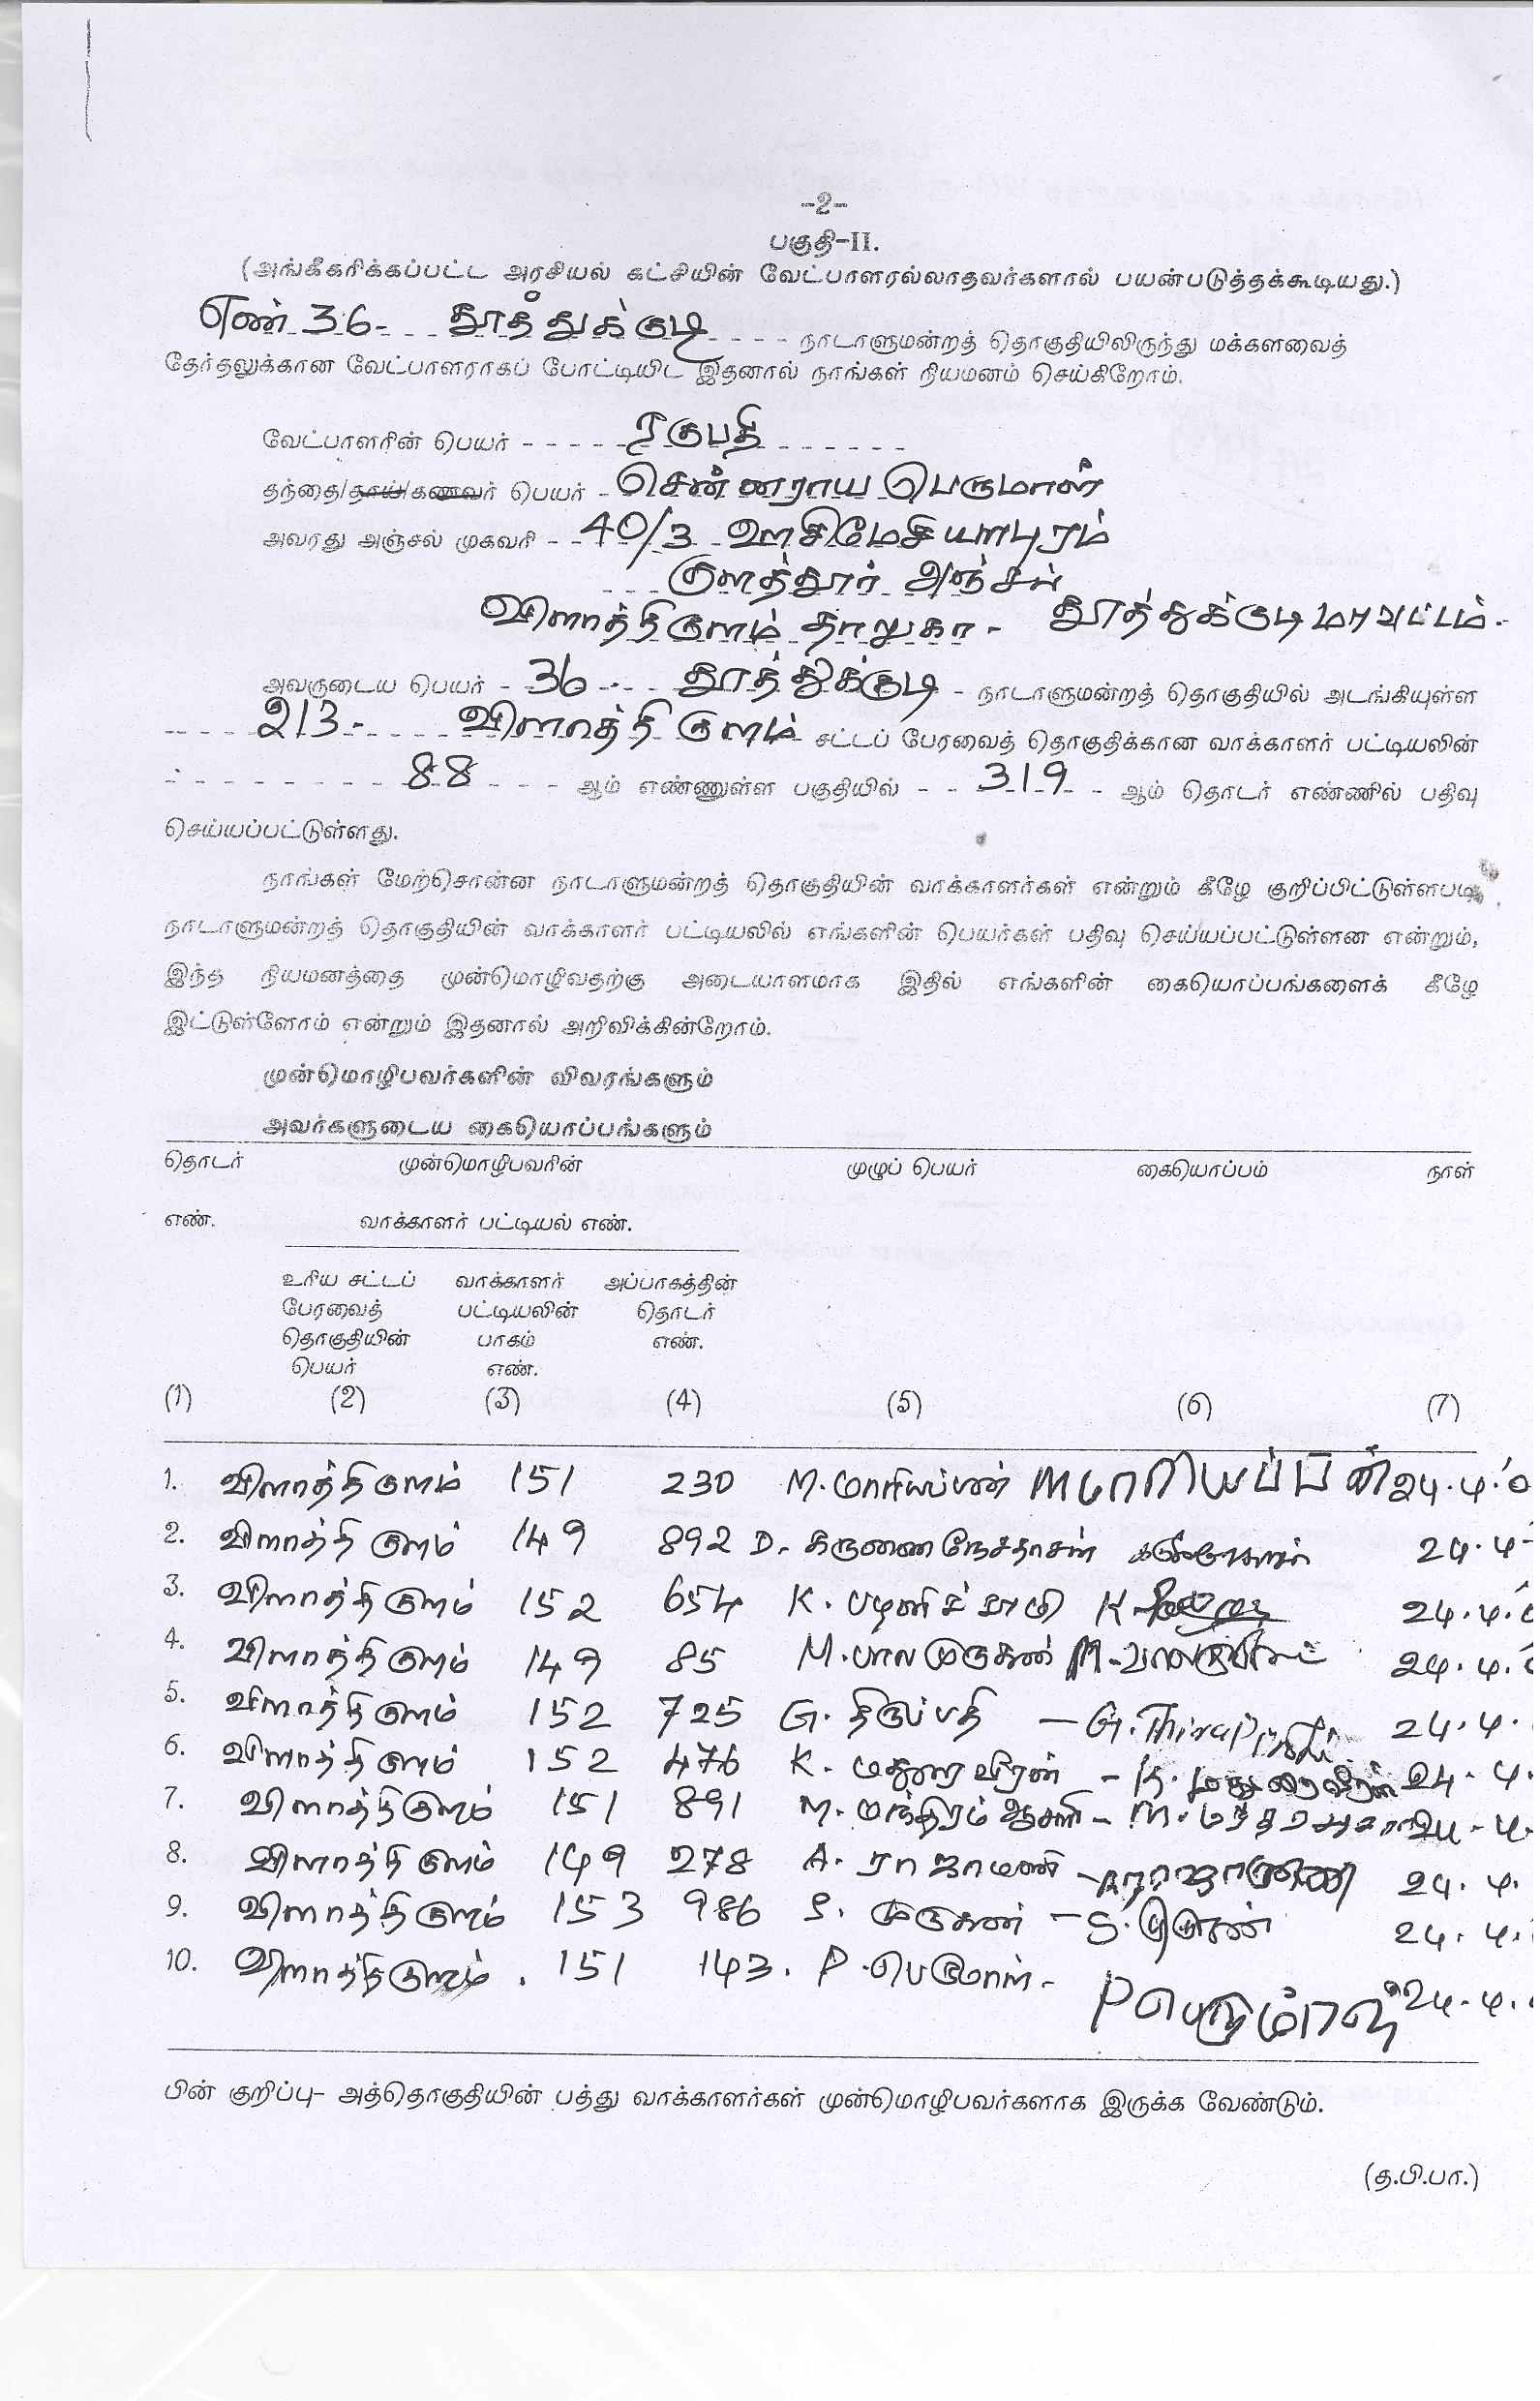 -2-
பகுதி-II.
(அங்கீகரிக்கப்பட்ட அரசியல் கட்சியின் வேட்பாளரல்லாதவர்களால் பயன்படுத்தக்கூடியது.)
எண் 36- தூத்துக்குடி நாடாளுமன்றத் தொகுதியிலிருந்து மக்களவைத்
தேர்தலுக்கான வேட்பாளராகப் போட்டியிட இதனால் நாங்கள் நியமனம் செய்கிறோம்.
வேட்பாளரின் பெயர் - - - - - ரகுபதி
தந்தை/தாய்/கணவர் பெயர் - சென்னராய பெருமாள்
அவரது அஞ்சல் முகவரி - - 40/3 ஊசிமேசியாபுரம்
குளத்தூர் அஞ்சல்
விளாத்திகுளம் தாலுகா - தூத்துக்குடி மாவட்டம்.
அவருடைய பெயர் - 36 - தூத்துக்குடி - நாடாளுமன்றத் தொகுதியில் அடங்கியுள்ள
213 - விளாத்திகுளம் சட்டப் பேரவைத் தொகுதிக்கான வாக்காளர் பட்டியலின்
88 - - - ஆம் எண்ணுள்ள பகுதியில் - - 319 - ஆம் தொடர் எண்ணில் பதிவு
செய்யப்பட்டுள்ளது.
நாங்கள் மேற்சொன்ன நாடாளுமன்றத் தொகுதியின் வாக்காளர்கள் என்றும் கீழே குறிப்பிட்டுள்ளபடி
நாடாளுமன்றத் தொகுதியின் வாக்காளர் பட்டியலில் எங்களின் பெயர்கள் பதிவு செய்யப்பட்டுள்ளன என்றும்,
இந்த நியமனத்தை முன்மொழிவதற்கு அடையாளமாக இதில் எங்களின் கையொப்பங்களைக் கீழே
இட்டுள்ளோம் என்றும் இதனால் அறிவிக்கின்றோம்.
முன்மொழிபவர்களின் விவரங்களும்
அவர்களுடைய கையொப்பங்களும்
தொடர் முன்மொழிபவரின் முழுப் பெயர் கையொப்பம் நாள்
எண். வாக்காளர் பட்டியல் எண்.
உரிய சட்டப் வாக்காளர் அப்பாகத்தின்
பேரவைத் பட்டியலின் தொடர்
தொகுதியின் பாகம் எண்.
பெயர் எண்.
(1) (2) (3) (4) (5) (6) (7)
1. விளாத்திகுளம் 151 230 M. மாரியப்பன் M மாரியப்பன் 24.4.'0
2. விளாத்திகுளம் 149 892 D. கருணை நேசதாசன் 24.4-
3. விளாத்திகுளம் 152 654 K. பழனிச்சாமி 24.4.'0
4. விளாத்திகுளம் 149 85 M. பாலமுருகன் 24.4.'0
5. விளாத்திகுளம் 152 725 G. திருப்பதி - G. Thirappathi 24.4.
6. விளாத்திகுளம் 152 476 K. மதுரை வீரன் - K. மதுரைவீரன் 24.4.
7. விளாத்திகுளம் 151 891 M. மந்திரம் ஆசாரி - 24-4-
8. விளாத்திகுளம் 149 278 A. ராஜாமணி - ராஜாமணி 24.4.
9. விளாத்திகுளம் 153 986 S. முருகன் - S. முருகன் 24.4.
10. விளாத்திகுளம். 151 143. P. பெருமாள் - P பெருமாள் 24.4.
பின் குறிப்பு- அத்தொகுதியின் பத்து வாக்காளர்கள் முன்மொழிபவர்களாக இருக்க வேண்டும்.
(த.பி.பா.)